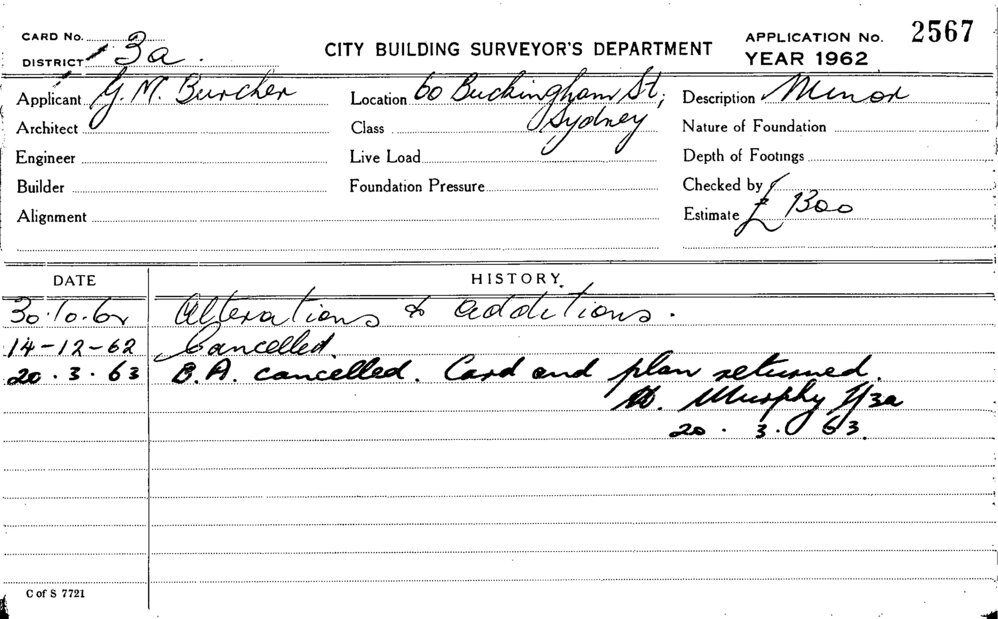 CARD No. 3a.
DISTRICT
CITY BUILDING SURVEYOR'S DEPARTMENT
APPLICATION No. 2567
YEAR 1962
Applicant G. M. Burcher
Location 60 Buckingham St,
Sydney
Description Minor
Architect
Class
Nature of Foundation
Engineer
Live Load
Depth of Footings
Builder
Foundation Pressure
Checked by
Alignment
Estimate £ 1300
DATE
HISTORY.
30.10.62 Alterations & additions.
14-12-62 Cancelled.
20.3.63 B.A. cancelled. Card and plan returned.
Murphy
20.3.63.
C of S 7721